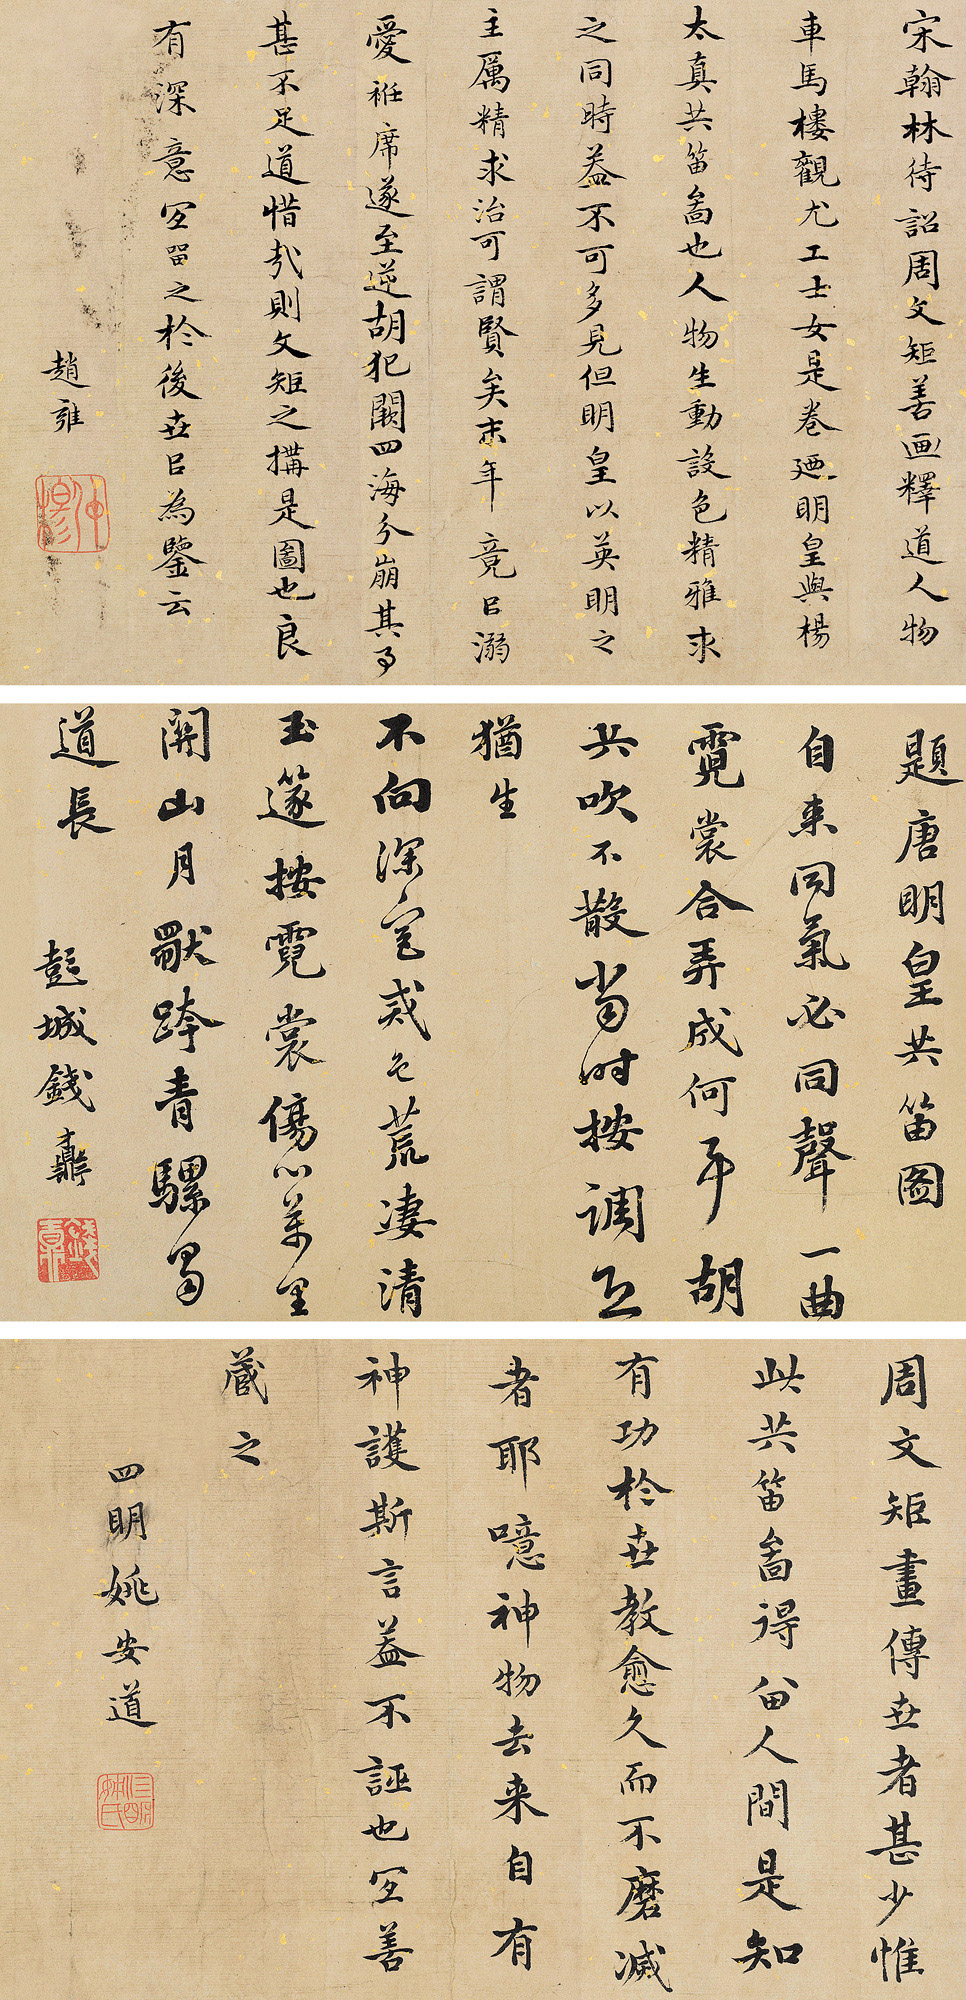 宋翰林待詔周文矩善画釋道人物
車馬樓觀尤工士女是卷廼明皇與楊
太真共笛啚也人物生動設色精雅求
之同時葢不可多見但明皇以英明之
主厲精求治可謂賢矣末年竟㠯溺
愛袵席遂至逆胡犯闕四海分崩其事
甚不足道惜哉則文矩之搆是圖也良
有深意宜留之於後世㠯為鑒云
趙雍
題唐明皇共笛圖
自来同氣必同聲一曲
霓裳合弄成何事胡
共吹不散當时按调互
猶生
不向深宮戒色荒凄清
玉篴按霓裳傷心萬里
關山月獸跨青騾蜀
道長
彭城錢鼒
周文矩畫傳世者甚少惟
此共笛啚得留人間是知
有功於世教愈久而不磨滅
者耶噫神物去来自有
神護斯言葢不誣也宜善
藏之
四明姚安道